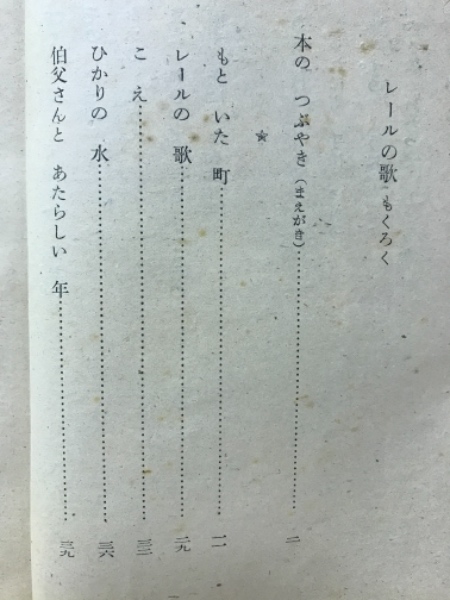 レールの歌 もくろく
本の つぶやき（まえがき）……二
☆
もと いた 町……一一
レールの 歌……二九
こ え……三三
ひかりの 水……三六
伯父さんと あたらしい 年……三九